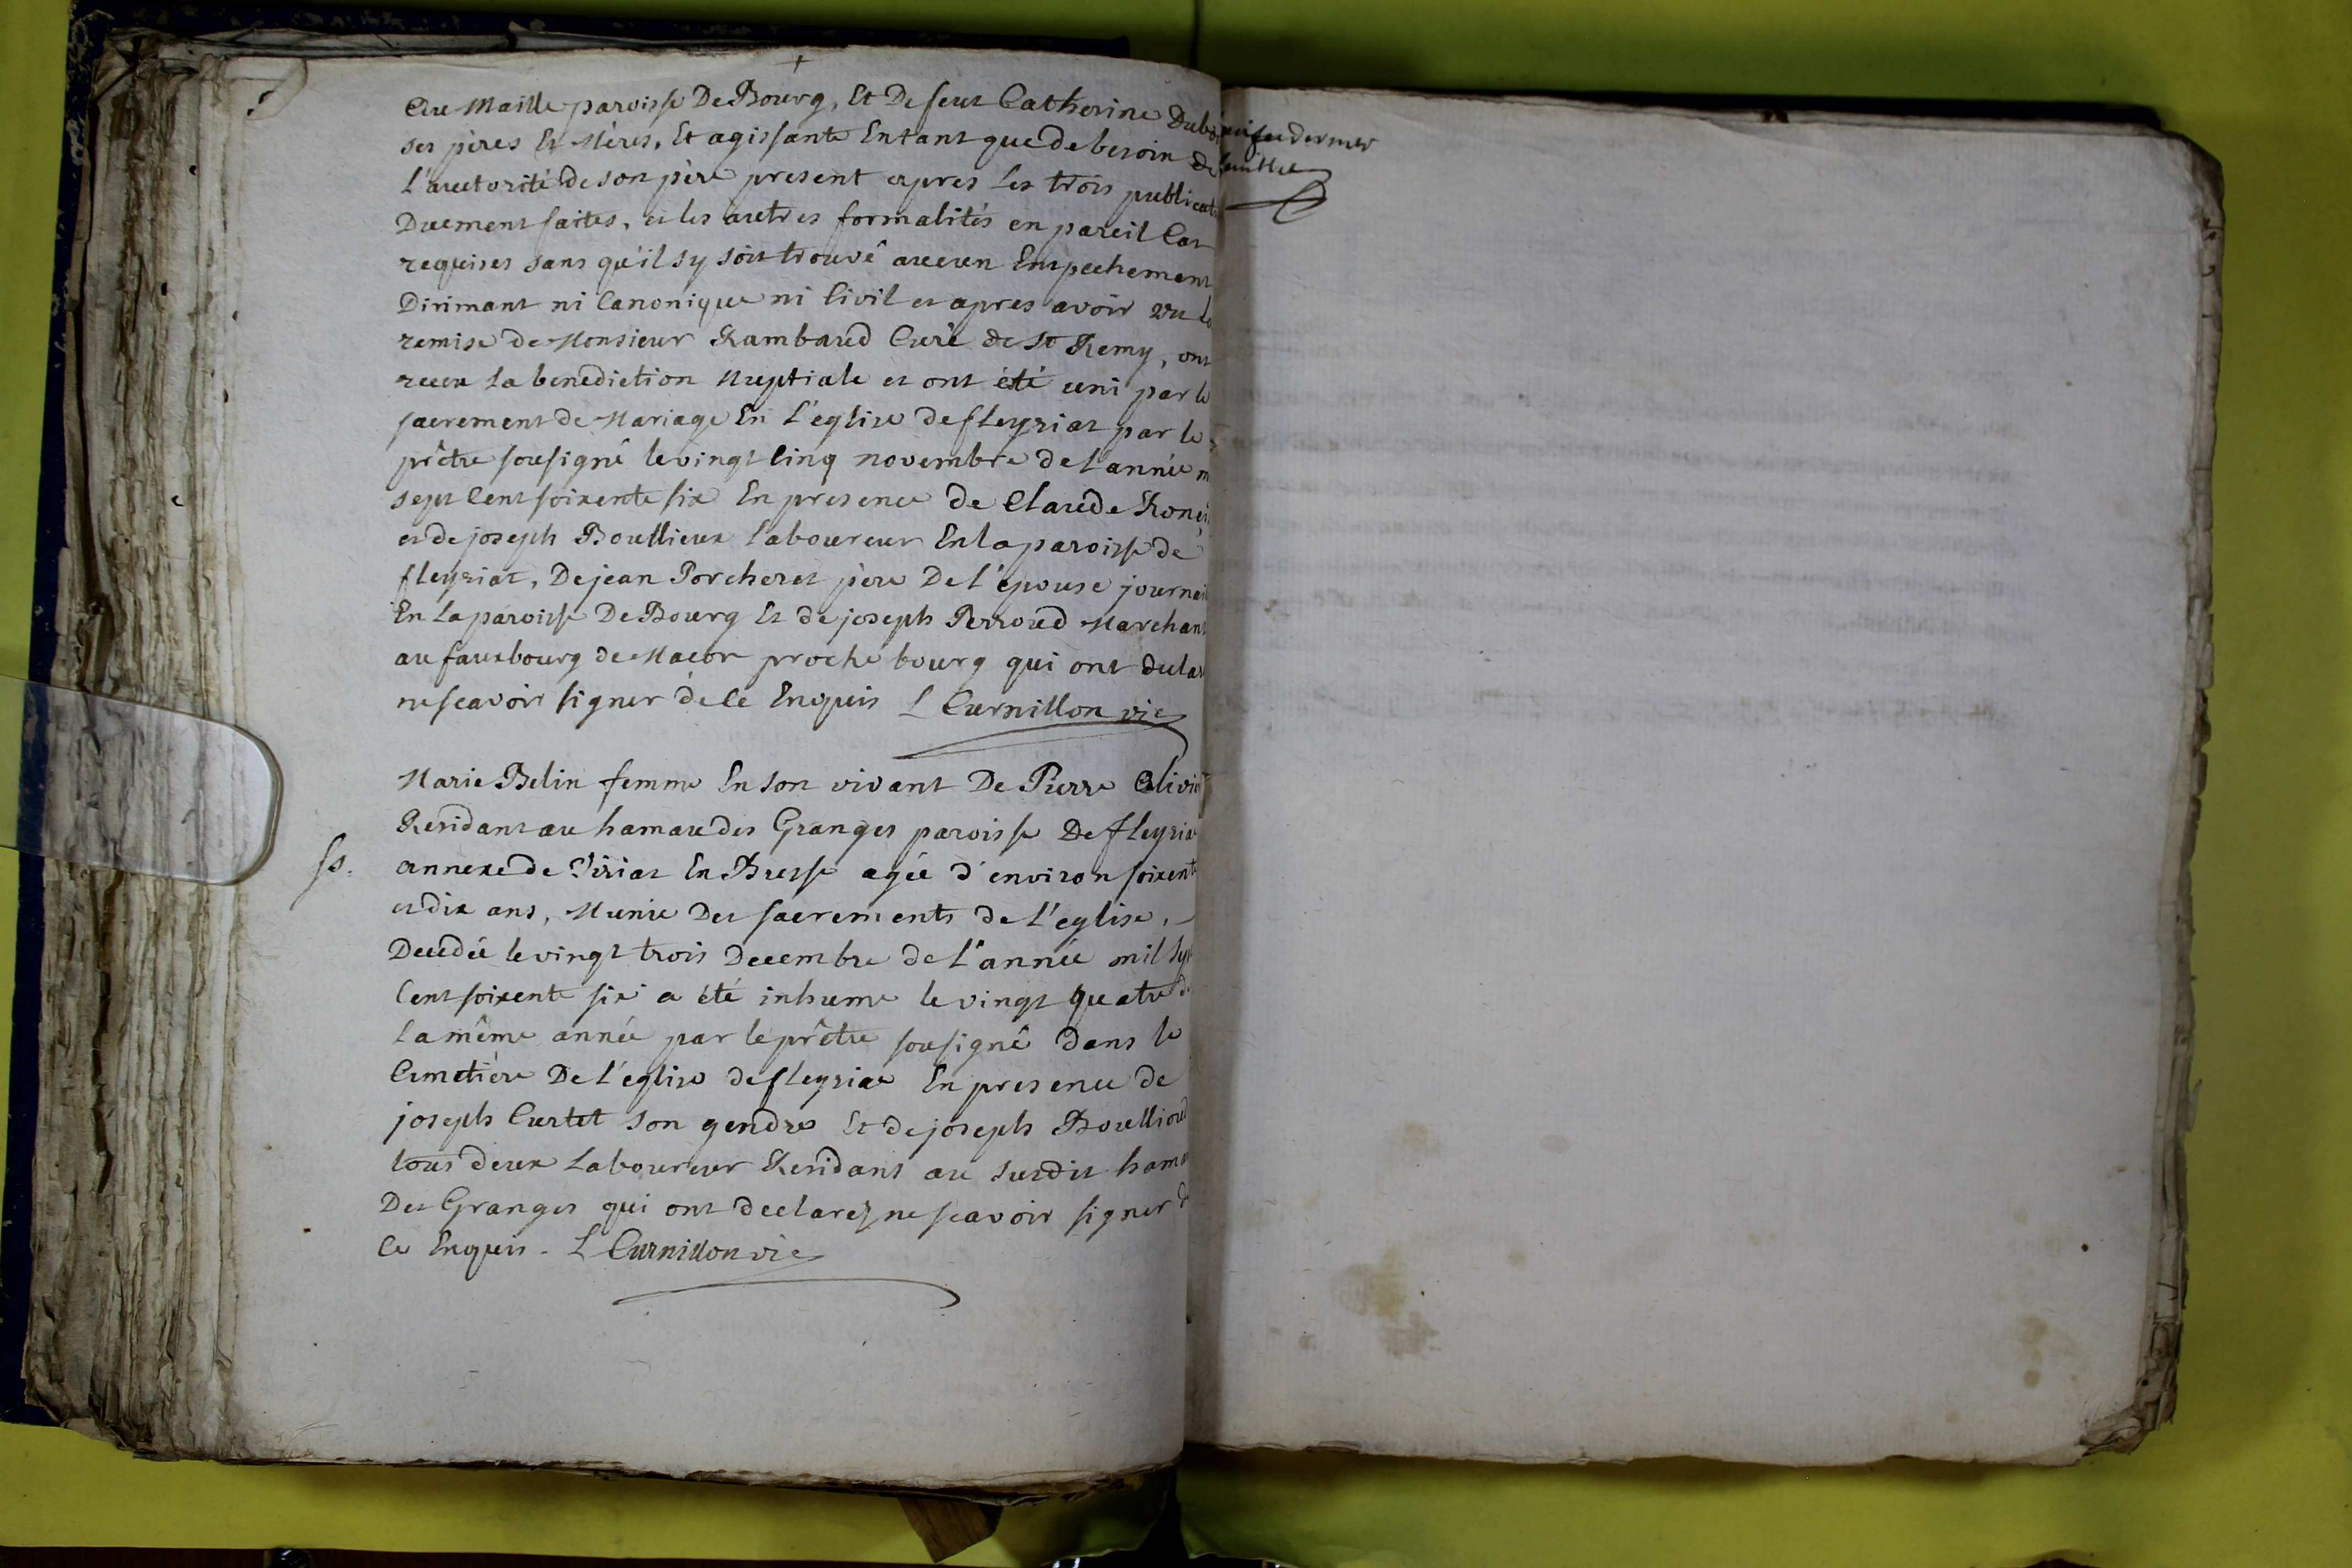 au Maille paroisse De Bourg, Et De feue Catherine
ses pères Et Mères, Et agissante Entant que de besoin De
l'auctorité de son père present apres les trois
Duement faites, et les autres formalités en pareil Cas
requises sans qu'il sy soit trouvé aucun Empechement
Dirimant ni Canonique ni Civil et apres avoir vu la
remise de Monsieur Rambaud Curé de St Remy, ont
receu la benediction Nuptiale et ont été uni par le
sacrement de Mariage En l'eglise de fleyriat par le
prêtre sousigné le vingt Cinq novembre de l'année
sept Cent soixente six En présence de Claude
et de joseph Boullieux laboureur En la paroisse de
fleyriat, De jean Porcheret père De l'épouse
En la paroisse De Bourg Et de joseph Perroud Marchant
au fauxbourg de Macon proche bourg qui ont
ne scavoir signer de Ce Enquis L Curnillon vic
Marie Belin femme En son vivant De Pierre
Residant au hamau des Granges paroisse De fleyriat
SS. annexe de Viriat En Bresse agée d'environ soixente
et dix ans, Munie Des sacrements de l'eglise,
Decedée le vingt trois Decembre de l'année mil sept
Cent soixente six a été inhume le vingt quatre de
la même année par le prêtre sousigné dans le
Cimetière De l'eglise de fleyriat En presence de
joseph Curtet son gendre Et de joseph Boullioud
tous deux Laboureur Residant au susdit
Des Granges qui ont declarez ne scavoir signer de
Ce Enquis - L Curnillon vic